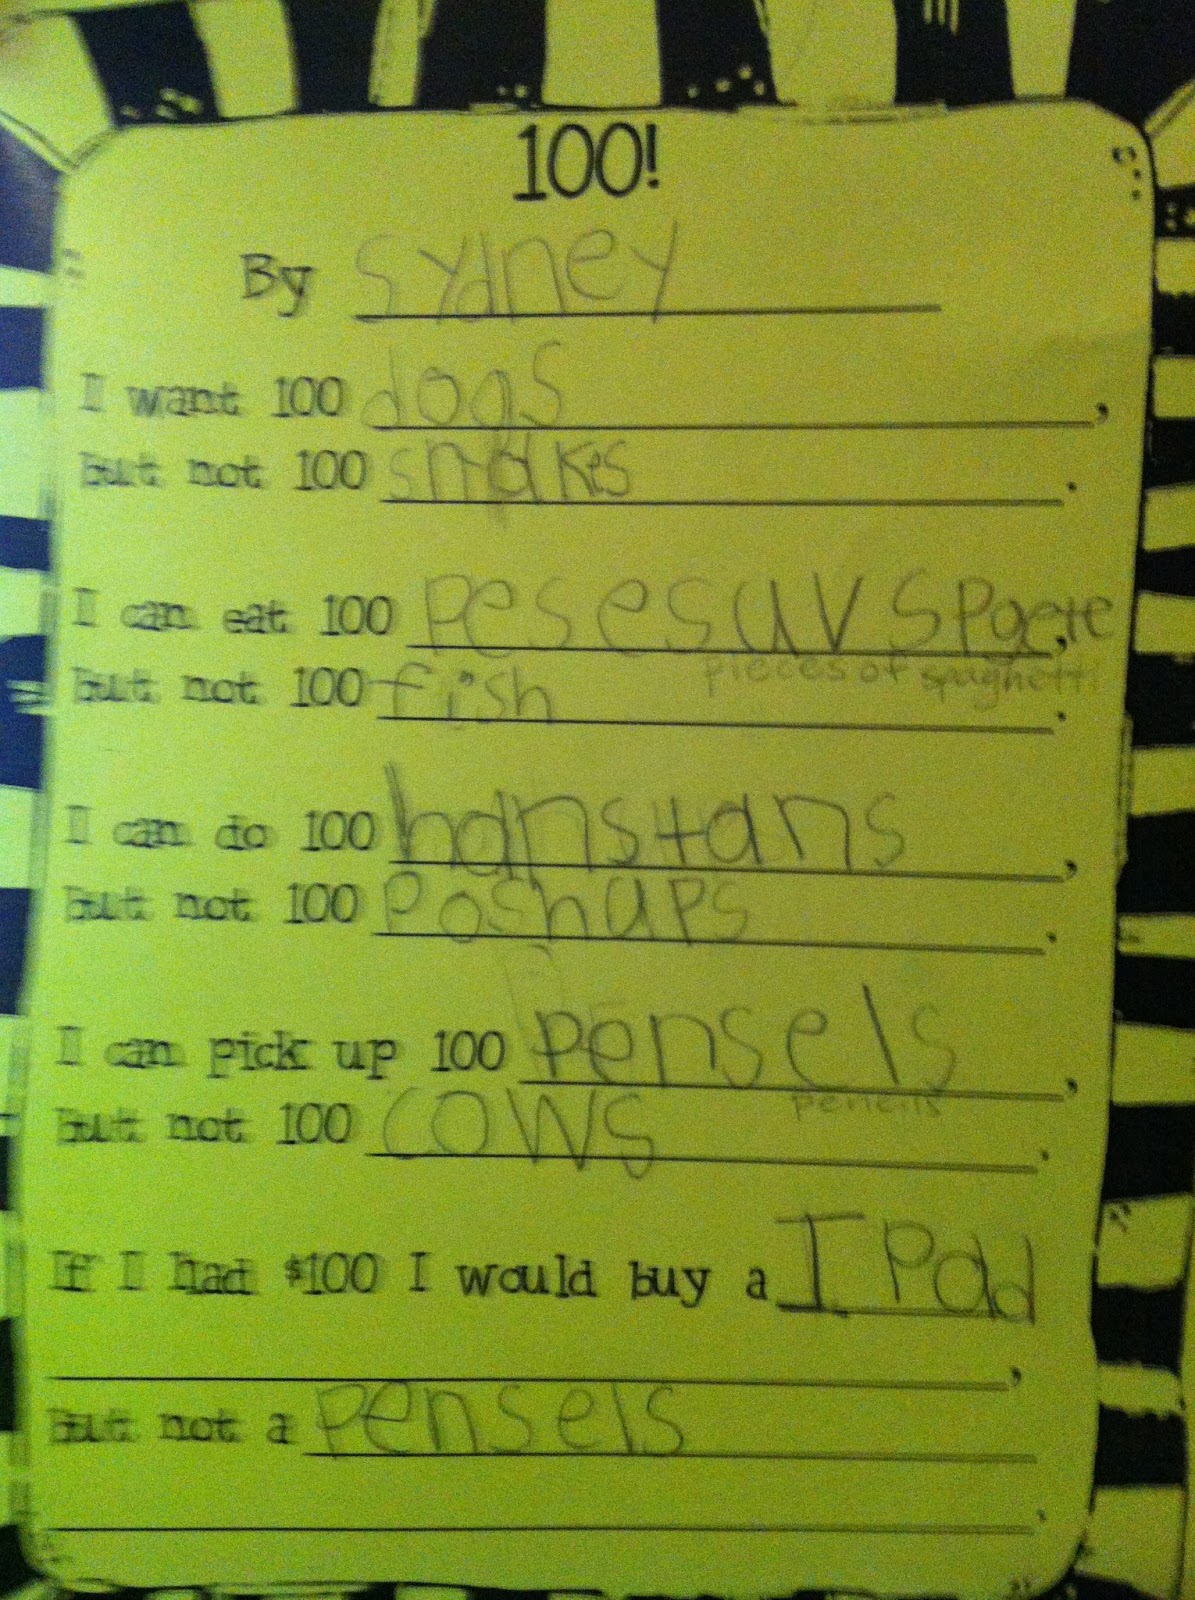 100!
By Sydney
I want 100 dogs,
But not 100 snakes.
I can eat 100 pesesuv spgete,
pieces of spaghetti
But not 100 fish.
I can do 100 hanstans,
But not 100 poshups.
I can pick up 100 pensels,
pencils
But not 100 cows.
If I had $100 I would buy a I Pad
,
But not a pensels
.